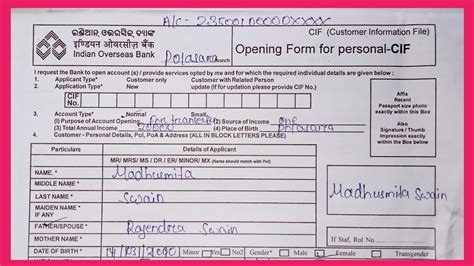 A/C- 23500100000XXXX
ଇଣ୍ଡିଆନ୍ ଓଭରସିଜ୍ ବ୍ୟାଙ୍କ
इण्डियन ओवरसीज़ बैंक
Indian Overseas Bank
Polasara
Branch
CIF (Customer Information File)
Opening Form for personal-CIF
I request the Bank to open account (s) / provide services opted by me and for which the required individual details are given below :
1. Applicant Type* Customer Customer with Related Person
2. Application Type* New update (if for updation please provide CIF No.)
CIF No.
3. Account Type* Normal Small
(1) Purpose of Account Opening For transfer (2) Source of Income one
(3) Total Annual Income 20000 (4) Place of Birth Polasara
4. Customer - Personal Details, PoI, PoA & Address (ALL IN BLOCK LETTERS PLEASE)
Affix
Recent
Passport size photo
exactly within this Box
Also
Signature / Thumb
Impression exactly
within the Box below
Particulars Details of Applicant
MR/ MRS/ MS / DR / ER/ MINOR/ MX (Name should match with PoI)
NAME.* Madhusmita
MIDDLE NAME *
LAST NAME * Swain
MAIDEN NAME IF ANY
FATHER/SPOUSE * Rajendra Swain
MOTHER NAME *
DATE OF BIRTH * 14/03/2000 Minor Yes No Gender* Male Female Transgender
Madhusmita Swain
If Staff, Rol No.